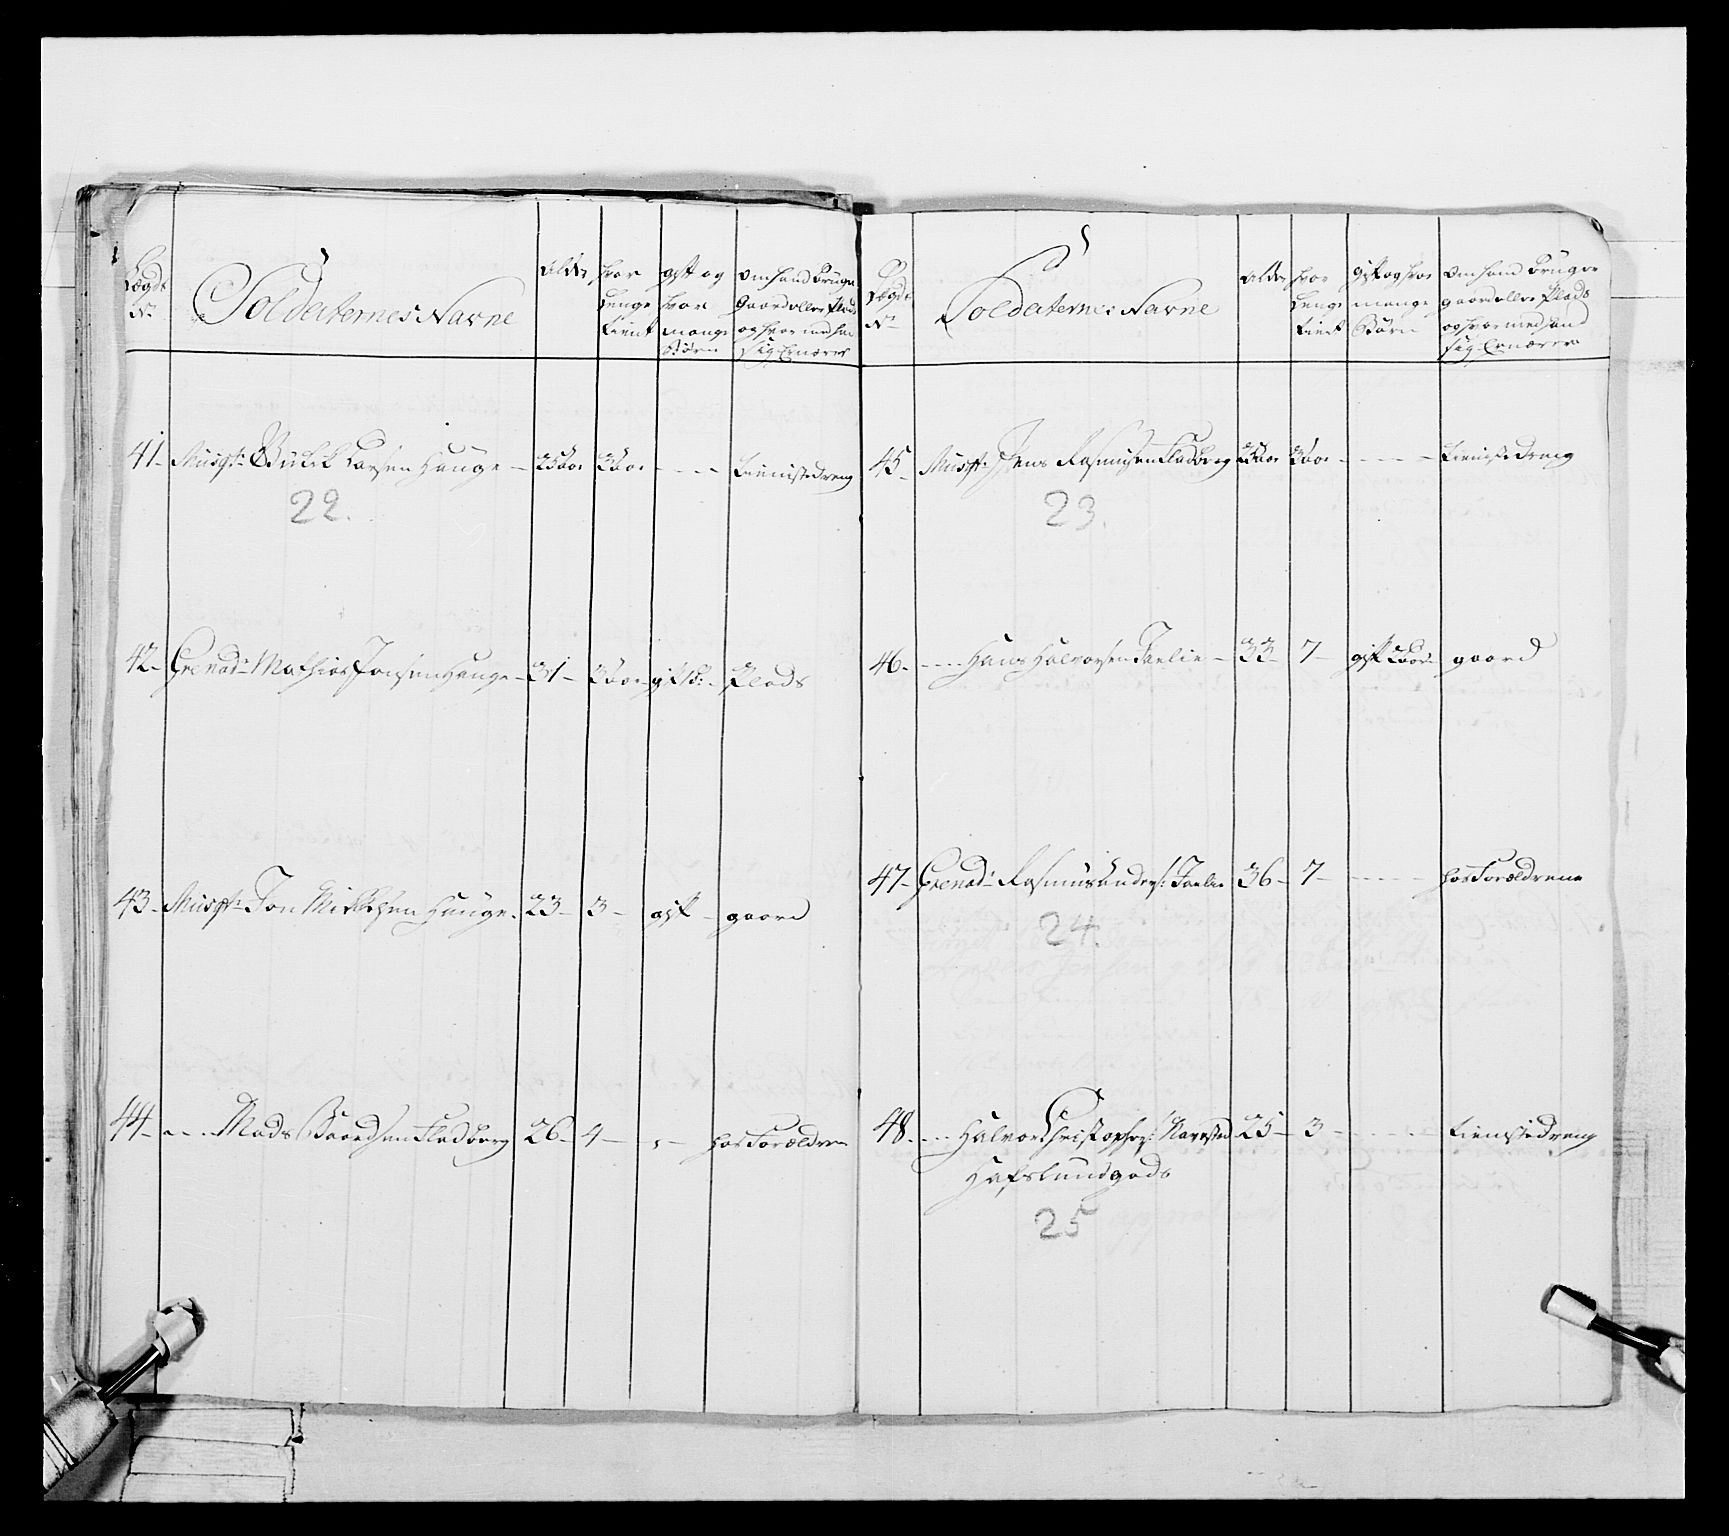 Lægds No Soldaternes Navne alder hvor lenge tient gift og hvor mange Børn om hand bruger Gaard eller Plads og hvormed hand sig Ernærer
41 Musqt: Larsen Hauge 25 aar 3 aar tienistedreng
22.
42 Grenad: Mathias Jonsen Hauge 31 3 aar gift Plads
43 Musqt: Jon Hauge 23 3 gift gaard
44 Mads Baardsen Fladberg 26 4 hos Forældren
Lægds No Soldaternes Navne alder hvor lenge tient gift og hvor mange Børn om hand bruger gaard eller Plads og hvormed hand sig Ernærer
45 Musqt: Jens Rasmusen Fladberg 3 aar tienistedreng
23.
46 Hans Halvorsen 33 7 gift gaard
47 Grenad: Rasmus Anders: 36 7 hos Forældrene
24.
48 Halvor Christophers: 25 3 tienistedreng
Hafslundgods
25